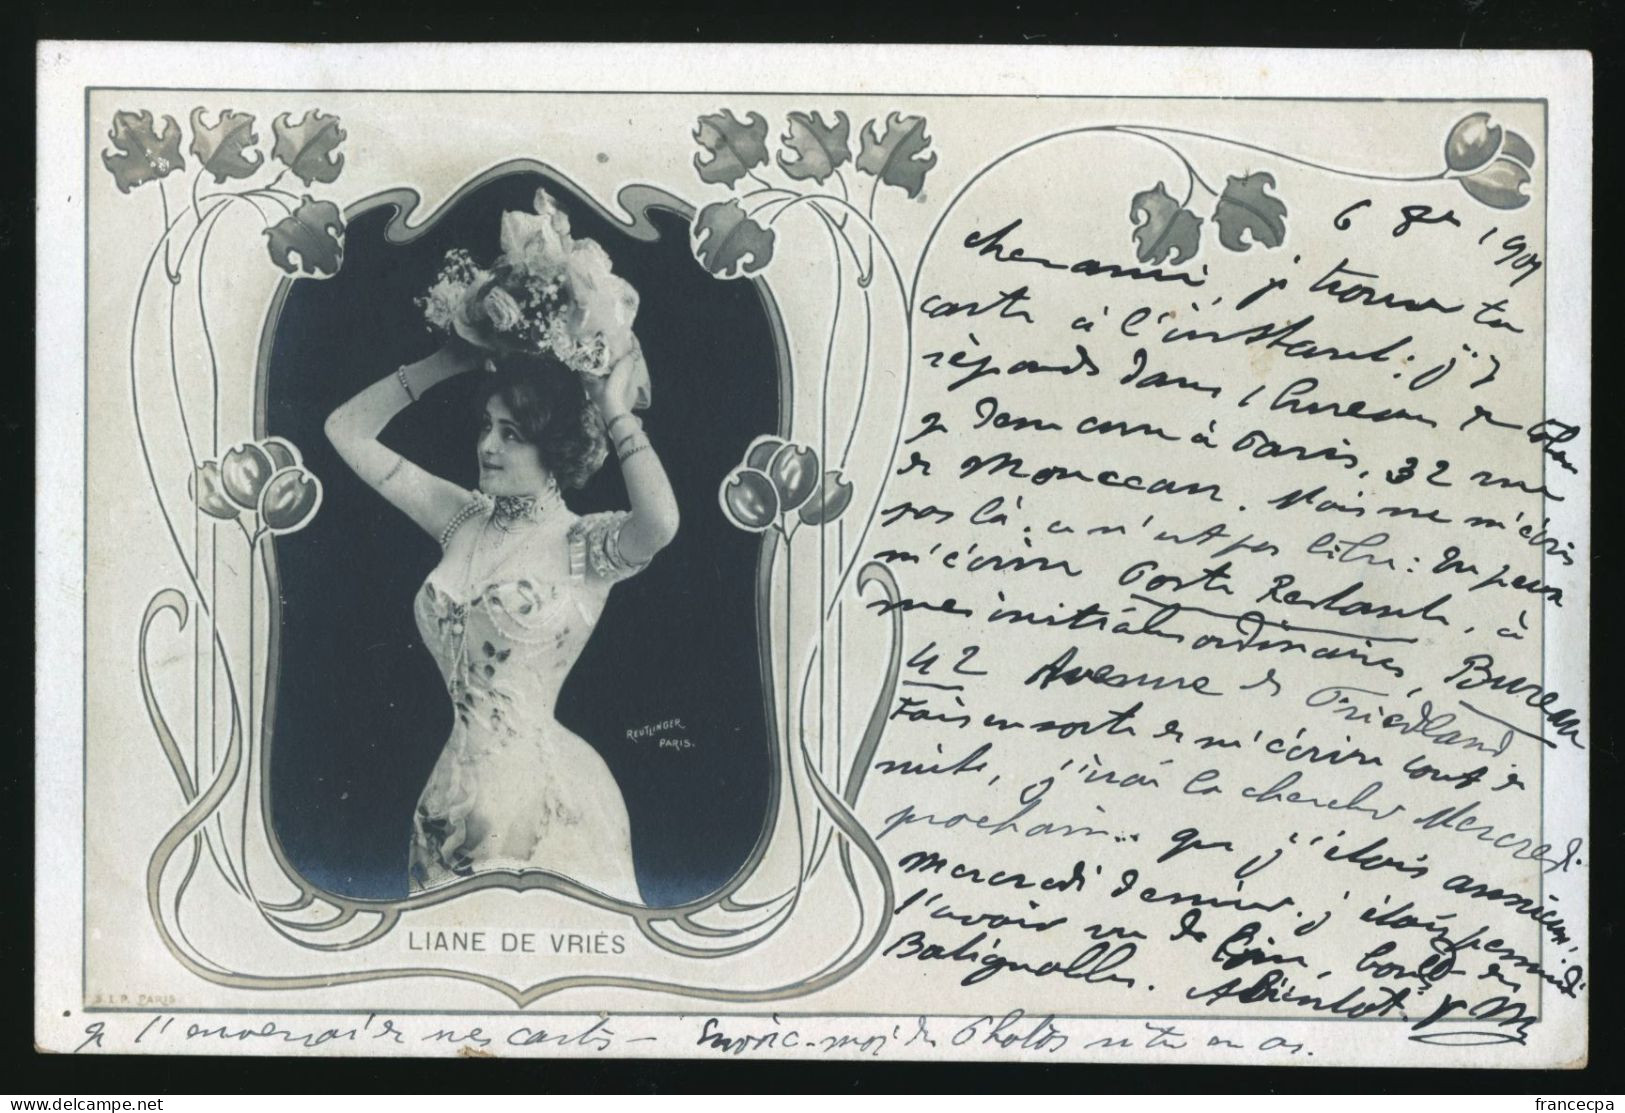 6 1901
cher ami, je trouve ta
carte à l'instant : j'y
réponds dans l bureau
à Paris, 32 rue
de Monceau. Mais ne m'écris
pas là. ce n'est pas libre : tu peux
m'écrire Poste Restante, à
mes initiales ordinaires, Bureau
42 Avenue de Friedland
Fais en sorte de m'écrire tout de
suite, j'irai la chercher Mercredi
prochain..
Mercredi dernier. j'étais persuadé
l'avoir vu de loin, boulev des
Batignolles. A Bientôt.
je t'enverrai de mes cartes — Envoie-moi des Photos si tu en as.
LIANE DE VRIÈS
REUTLINGER
PARIS.
S.I.P. PARIS
delcampe.net
francecpa